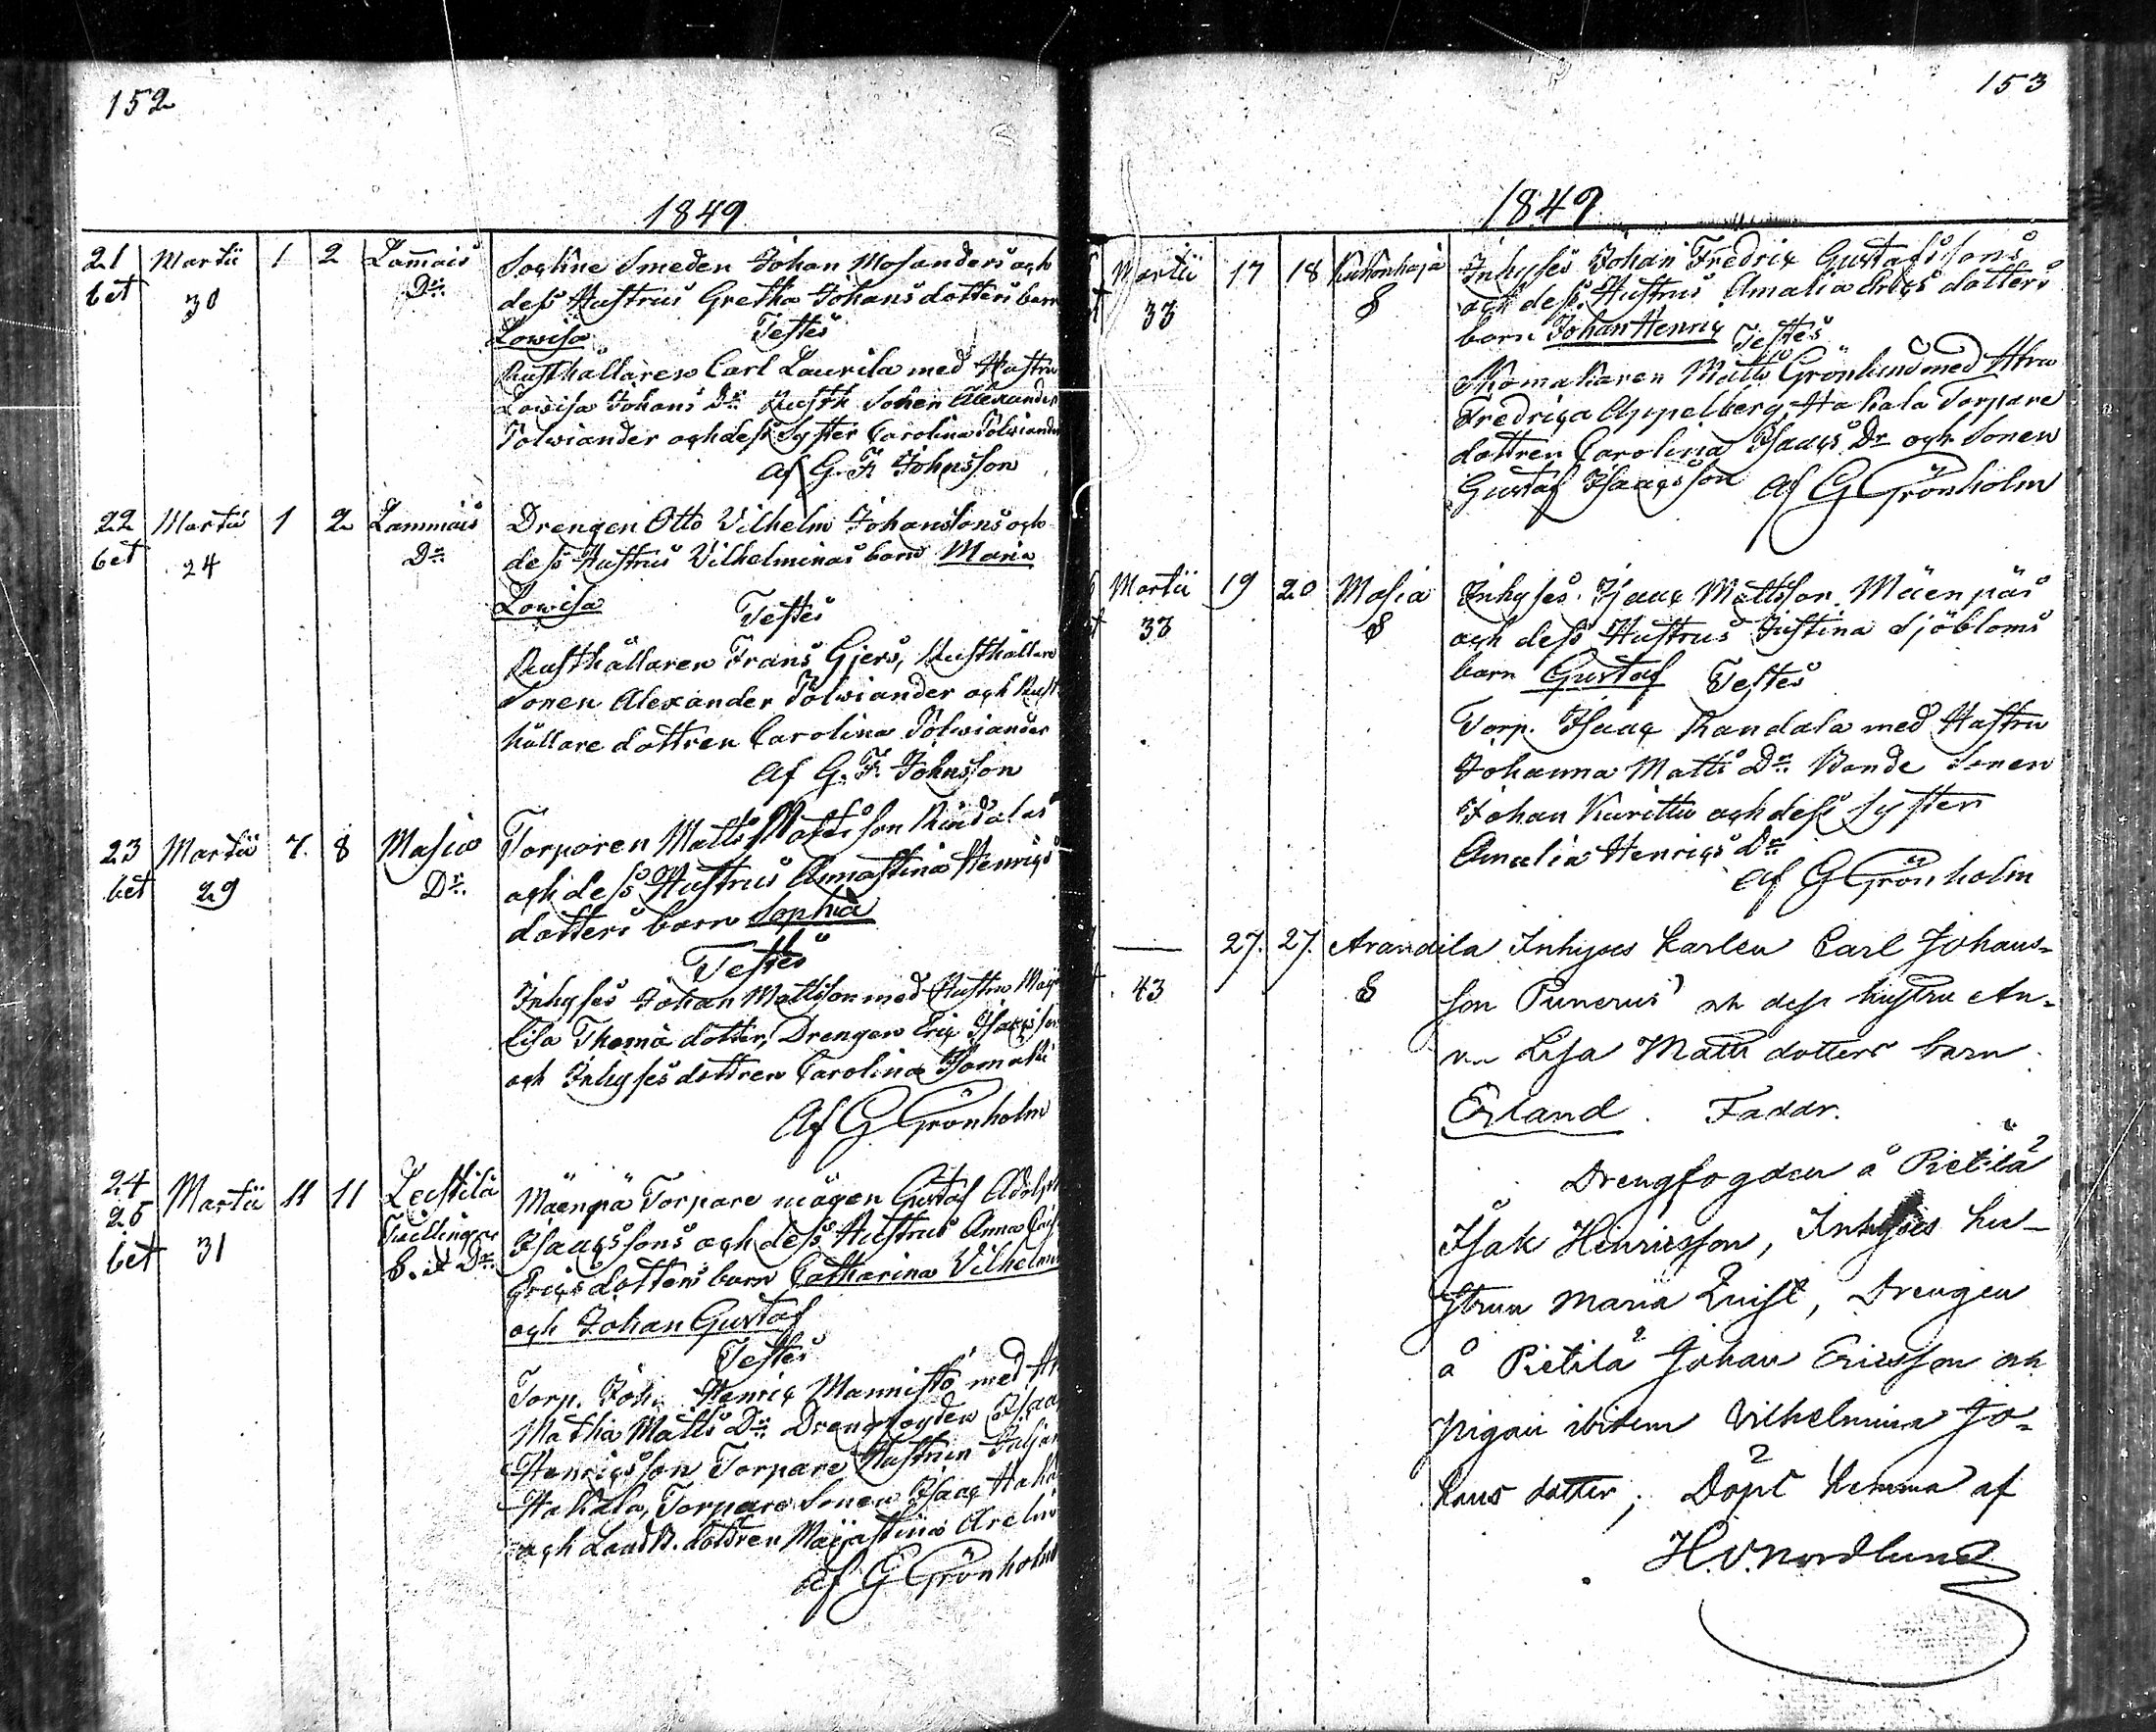 152
1849
21 Martii 1 2 Lamais Sochne Smeden Johan Mosanders och
bet 30 Dr. dess Hustrus Gretha Johans dotters barn
Lowisa Testes
Rusthållaren Carl Laurila med Hustru
Lowisa Johans Dr. Rusth. Sonen Alexander
Polwiander och dess Syster Carolina Polwiander
af G. F. Johnsson
22 Martii 1 2 Lammais Drengen Otto Vilhelm Johanssons och
bet 24 Dr. dess Hustrus Vilhelminas barn Maria
Lowisa Testes
Rusthållaren Frans Gjers, Rusthållare
Sonen Alexander Polwiander och Rust
hållare dottren Carolina Polwiander
af G. F. Johnsson
23 Martii 7. 8 Masia Torparen Matts Mattsson
bet 29 Dr. och dess Hustrus Annastina Henrics
dotters barn Sophia
Testes
Inhyses Johan Mattsson med Hustru Maja
Lisa Thoma dotter, Drengen Eric Isacsson
och Inhyses dottren Carolina
Af G Grönholm
24 Martii 11 11 Leistilä Mäenpä Torpare mågen Gustaf Adolph
25 Tvillingar Isaacssons och dess Hustrus Anna
bet 31 S. et Dr. Erics dotters barn Catharina Vilhelmina
och Johan Gustaf
Testes
Torp. Joh. Henric Mannistö med H
Matts Dr. Drengfogden Isaa
Henricsson Torpare Hustrun
Hakala, Torpare Sonen Isaac Haka
och dottren Majastina
af G Grönholm
153
1849
Martii 17 18 Kuhonhaja Inhyses Johan Fredric Gustafssons
33 S och dess Hustrus Amalia Erics dotters
barn Johan Henric Testes
Skomakaren Matts Grönlund med Hru
Fredrica Appelberg, Hakala Torpare
dottren Carolina Isaacs Dr. och Sonen
Gustaf Isaacsson af G Grönholm
Martii 19 20 Masia Inhyses Isaac Mattsson Mäenpäs
33 S och dess Hustrus Justina Sjöbloms
barn Gustaf Testes
Torp. Isaac Randala med Hustru
Johanna Matts Dr. Bonde Sonen
Johan Kurittu och dess Syster
Amalia Henrics Dr.
af G Grönholm
— 27. 27. Arandila Inhyses karlen Carl Johans-
43 S son Punerus och dess hustru An-
na Lisa Matts dotters barn
Erland. Faddr.
Drengfogden å Pietilä
Isak Hinricsson, Inhyses hu-
strun Maria Quist, Drengen
å Pietilä Johan Ericsson och
pigan ibidem Vilhelmina Jo-
hans dotter; Döpt hemma af
H. V. Nordlund